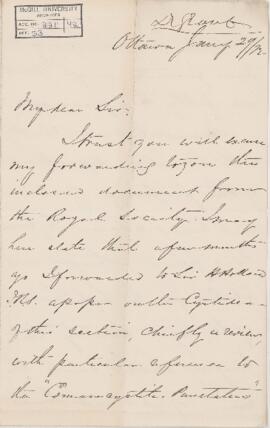 McGILL UNIVERSITY
ARCHIVES
ACC. NO.
REF. 53
Dr Grant
Ottawa Jany 29/
My dear Sir,
I trust you will excuse
my forwarding to you the
inclosed document from
the Royal Society. I may
here state that a few months
ago I forwarded to Sir H Holland
a paper on the Cystideae
of this section, chiefly a review,
with particular reference to
the "Comarocystites Punctatus"